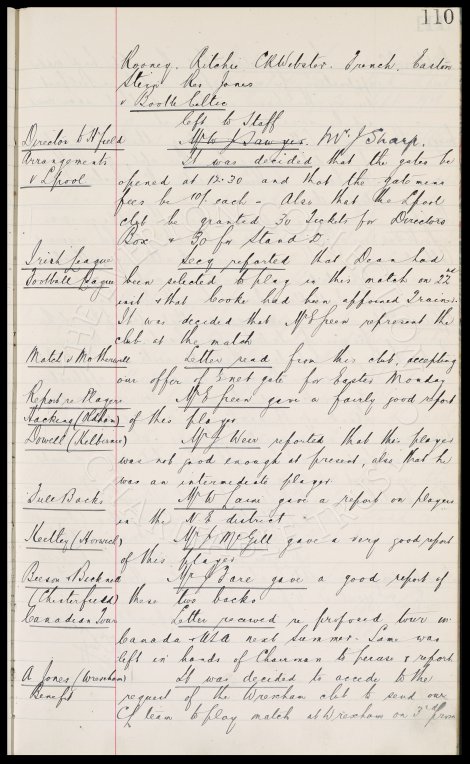 110
Rooney. Ritchie C R Webster. French. Easton
Res Jones
v Bootle Celtic
left to Staff
Director to H'field Mr W J Sawyer. Mr J Sharp.
Arrangements It was decided that the gates be
v L'pool opened at 12.30 and that the gatemens
fees be 10/- each. Also that the L'pool
club be granted 30 tickets for Directors
Box & 30 for Stand D.
Irish League Secy reported that Dean had
Football League been selected to play in this match on 22nd
inst & that Cooke had been appointed Trainer.
It was decided that Mr Green represent the
club at the match
Match v Motherwell Letter read from this club, accepting
our offer of ½ net gate for Easter Monday
Report re Players Mr Green gave a fairly good report
Hacking (Oldham) of this player
Dowell (Kelburne) Mr J Weir reported that this player
was not good enough at present, also that he
was an intermediate player
Full Backs Mr W Caine gave a report on players
in the N E district
Kelley (Horwich) Mr F McGill gave a very good report
of this player
Beeson & Bicknell Mr J Fare gave a good report of
(Chesterfield) these two backs
Canadian Tour Letter received re proposed tour in
Canada & USA next summer. Same was
left in hands of Chairman to peruse & report
A Jones (Wrexham) It was decided to accede to the
Benefit request of the Wrexham club to send our
CL team to play match at Wrexham on 3rd prox